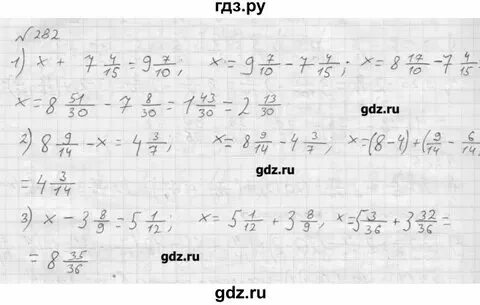 гдз.ру
№282
1) x + 7 4/15 = 9 7/10; x = 9 7/10 - 7 4/15; x = 8 17/10 - 7 4/15
x = 8 51/30 - 7 8/30 = 1 43/30 = 2 13/30
gdz.ru
2) 8 9/14 - x = 4 3/7; x = 8 9/14 - 4 3/7; x = (8-4) + (9/14 - 6/14
= 4 3/14
gdz.ru
3) x - 3 8/9 = 5 1/12; x = 5 1/12 + 3 8/9; x = 5 3/36 + 3 32/36 =
= 8 35/36
gdz.ru
gdz.ru